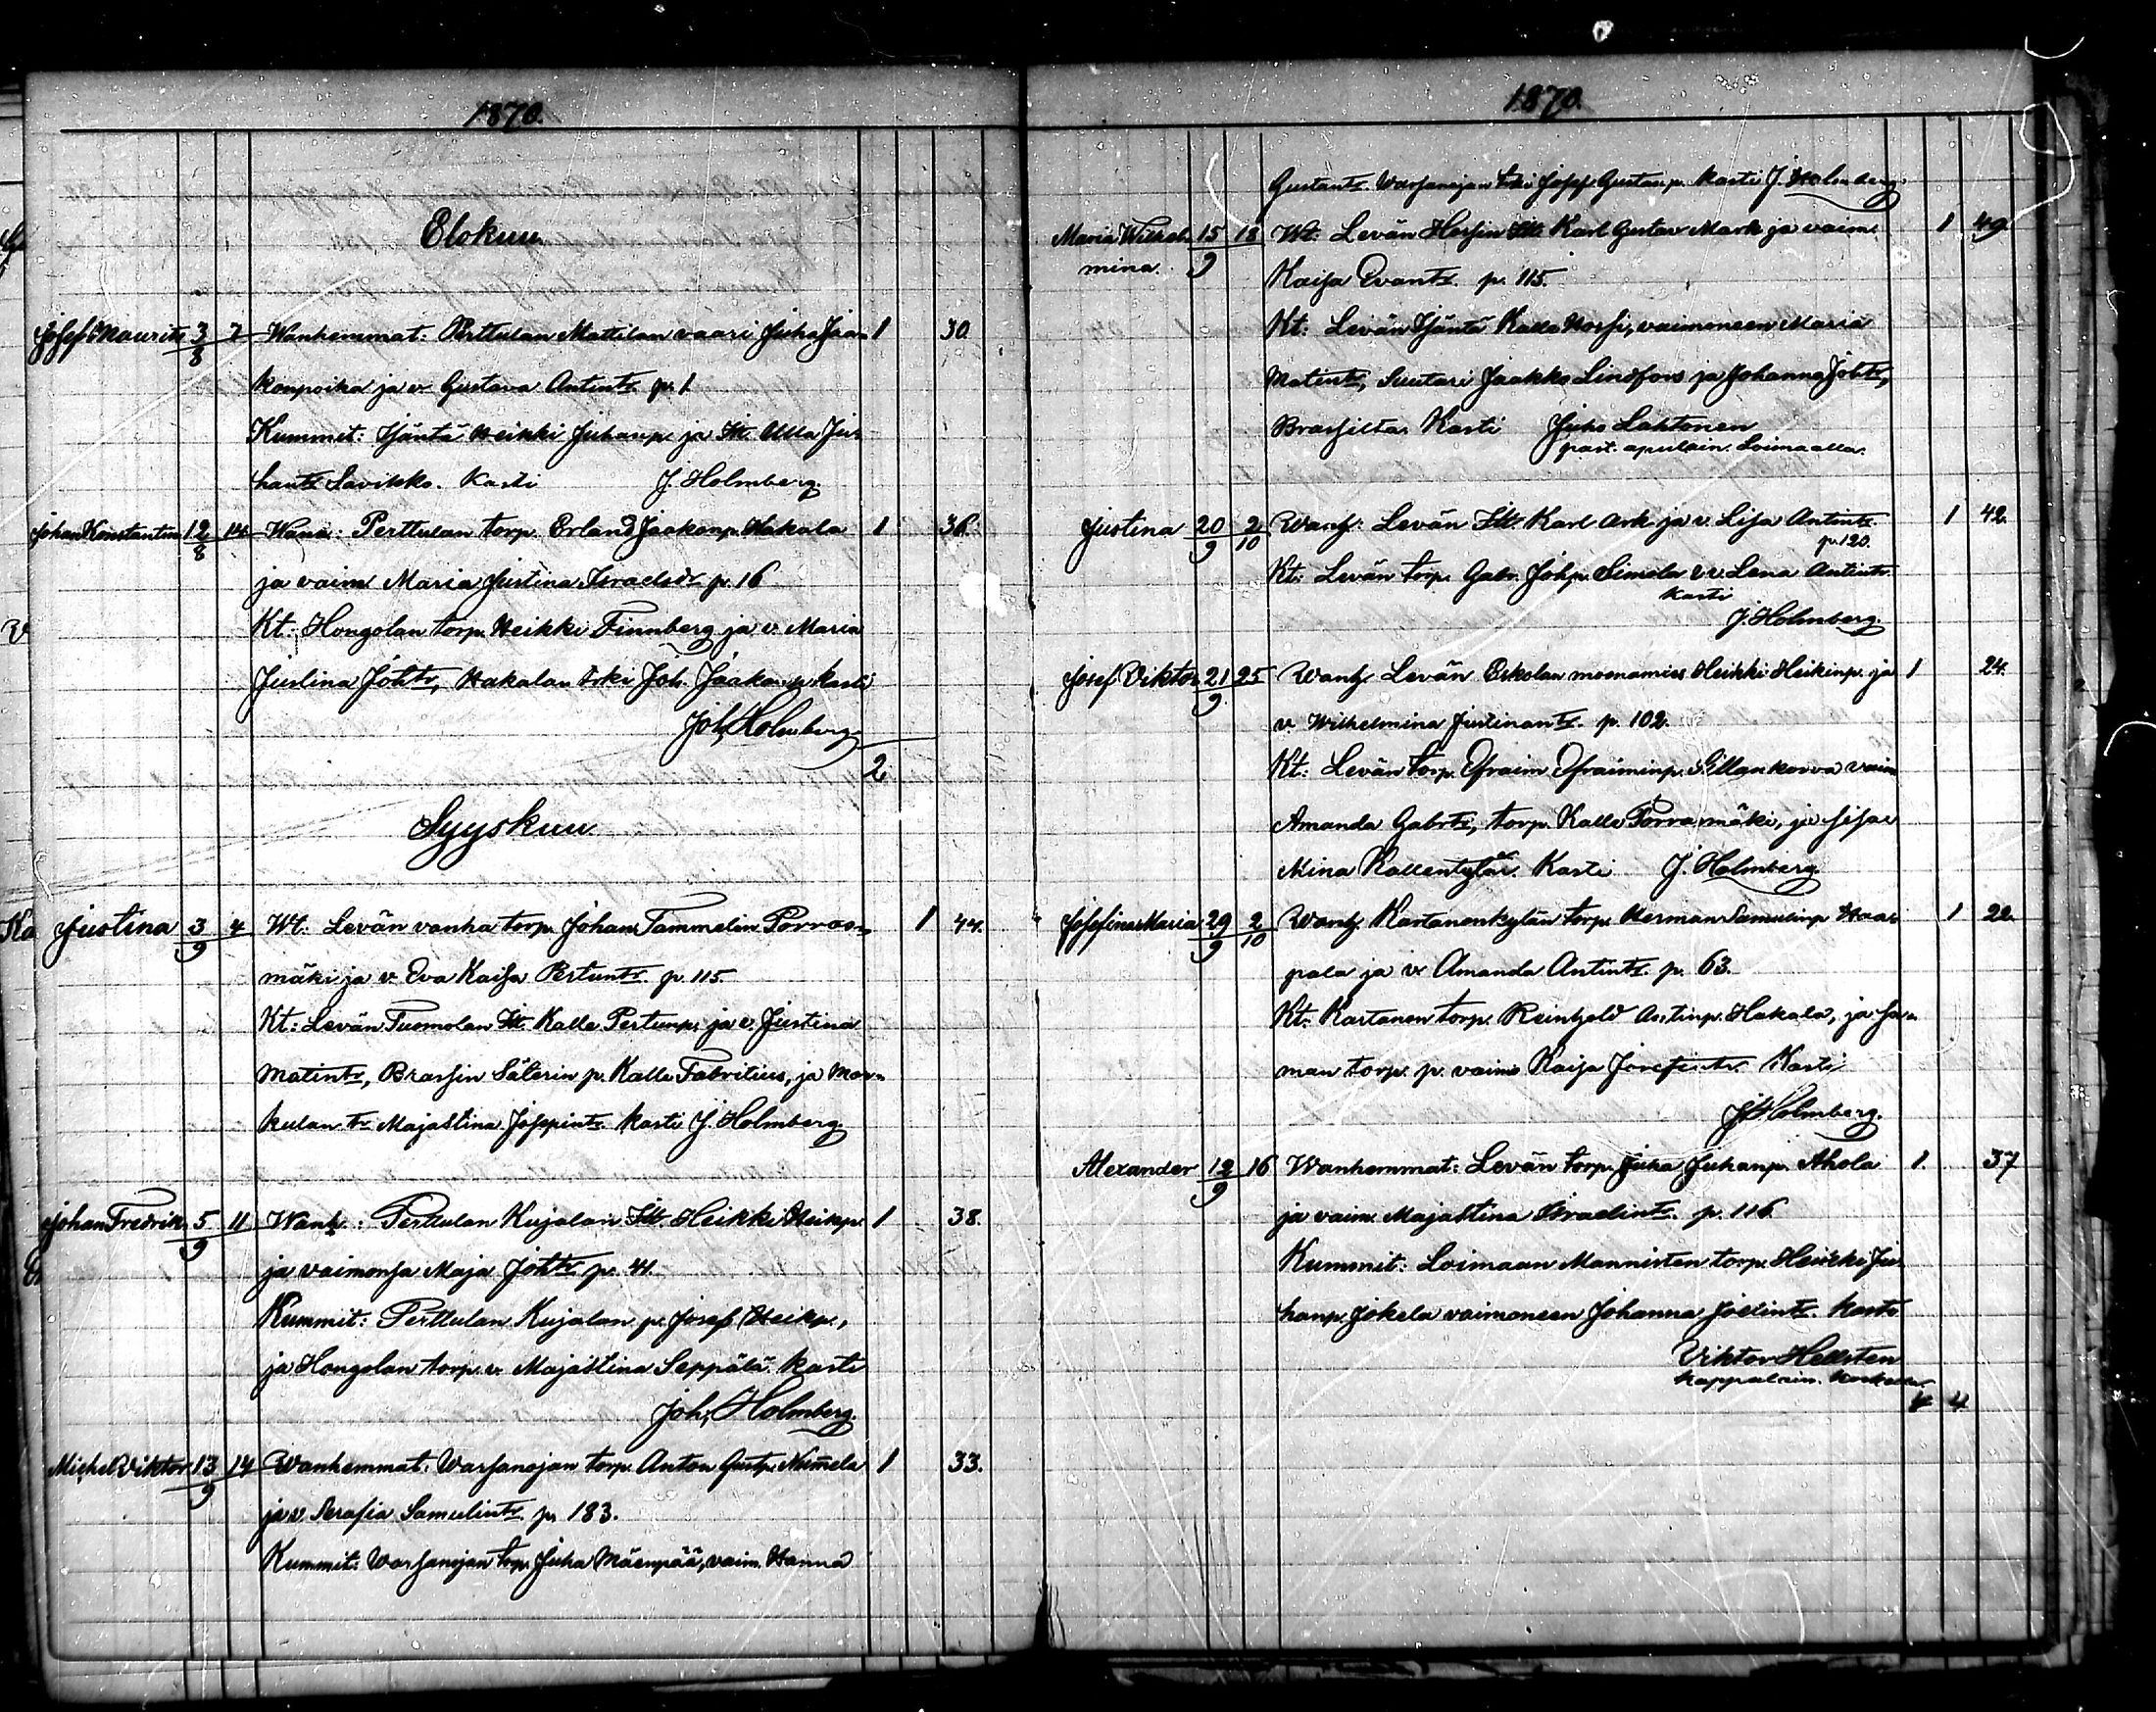 1870.
Elokuu
Josef Mauritz 3/8 7 Wanhemmat: Perttulan Mattilan vaari Juha Jaa= 1 30
konpoika ja v. Gustava Antintr. p. 1
Kummit: Itsäntä Heikki Juhanp. ja Itt. Ulla Ju=
hantr Savikko. Kasti J. Holmberg.
Johan Konstantin 12/8 14 Wana: Perttulan torp. Erland Jaakonp. Hakala 1 36.
ja vaim. Maria Justina Israelsdr p. 16
Kt: Hongolan torp. Heikki Finnberg ja v. Maria
Justina Johtr, Hakalan trki Joh. Jaakonp. kasti
Joh. Holmberg
2
Syyskuu
Justina 3/9 4 Wt: Levän vanha torp. Johan Tammelin Porras= 1 44.
mäki ja v. Eva Kaisa Pertuntr. p. 115.
Kt: Levän Tuomolan Itt. Kalle Pertunp. ja v. Justina
Matintr, Brassin Säterin p. Kalle Fabritius, ja Mar=
kulan tr Majastina Jospintr. kasti J. Holmberg
Johan Fredrik 5/9 11 Wanh.: Perttulan Kujalan Itt. Heikki Heikp. 1 38.
ja vaimonsa Maja Johtr p. 41.
Kummit: Perttulan Kujalan p. Josef Heikp.,
ja Hongolan torp. v. Majastina Seppälä. kasti
Joh. Holmberg.
Michel Viktor 13/9 14 Wanhemmat: Warsanojan torp. Anton Gustp. Num̄ela 1 33.
ja v. Serafia Samulintr. p. 183.
Kummit: Warsanojan trp. Juha Mäenpää, vaim. Hanna
1870.
Gustantr. Warsanojan trki Josef Gustanp. kasti J. Holmberg.
Maria Wilhel= 15/9 18 Wt: Levän Horsin Itt. Karl Gustav Mark ja vaim. 1 49.
mina. Kaisa Evantr. p. 115.
Kt: Levän Itsäntä Kalle Horsi, vaimoneen Maria
Matintr, Suutari Jaakko Lindfors ja Johanna Johtr,
Brassilta. Kasti Juho Lahtonen
past. apulain. Loimaalla.
Justina 20/9 2/10 Wanh: Levän Itt. Karl Ark ja v. Lisa Antintr. 1 42.
p. 120.
Kt: Levän torp. Gabr. Johp. Simola v. v. Lena Antintr.
kasti
J. Holmberg.
Josef Viktor 21/9 25 Wanh. Levän Eskolan moonamies Heikki Heikinp. ja 1 24.
v. Wilhelmina Justinantr. p. 102.
Kt: Levän torp. Efraim Efraiminp. Sillankorva vaim
Amanda Gabrtr, torp. Kalle Porrasmäki, ja sisar
Mina Kallentytär. Kasti J. Holmberg.
Josefina Maria 29/9 2/10 Wanh. Kartanonkylän torp. Herman Samulinp. Haa= 1 22.
pala ja v. Amanda Antintr. p. 63.
Kt: Kartanon torp. Reinhold Antinp. Hakala, ja sa=
man torp. p. vaimo Kaisa Josefintr. Kasti
J. Holmberg.
Alexander 12/9 16 Wanhemmat: Levän torp. Juha Juhanp. Ahola 1. 37
ja vaim. Majastina Israelintr. p. 116.
Kummit: Loimaan Mannisten torp. Heikki Ju=
hanp. Jokela vaimoneen Johanna Joelintr. kasti
Viktor Hellsten
kappalain.
4 4